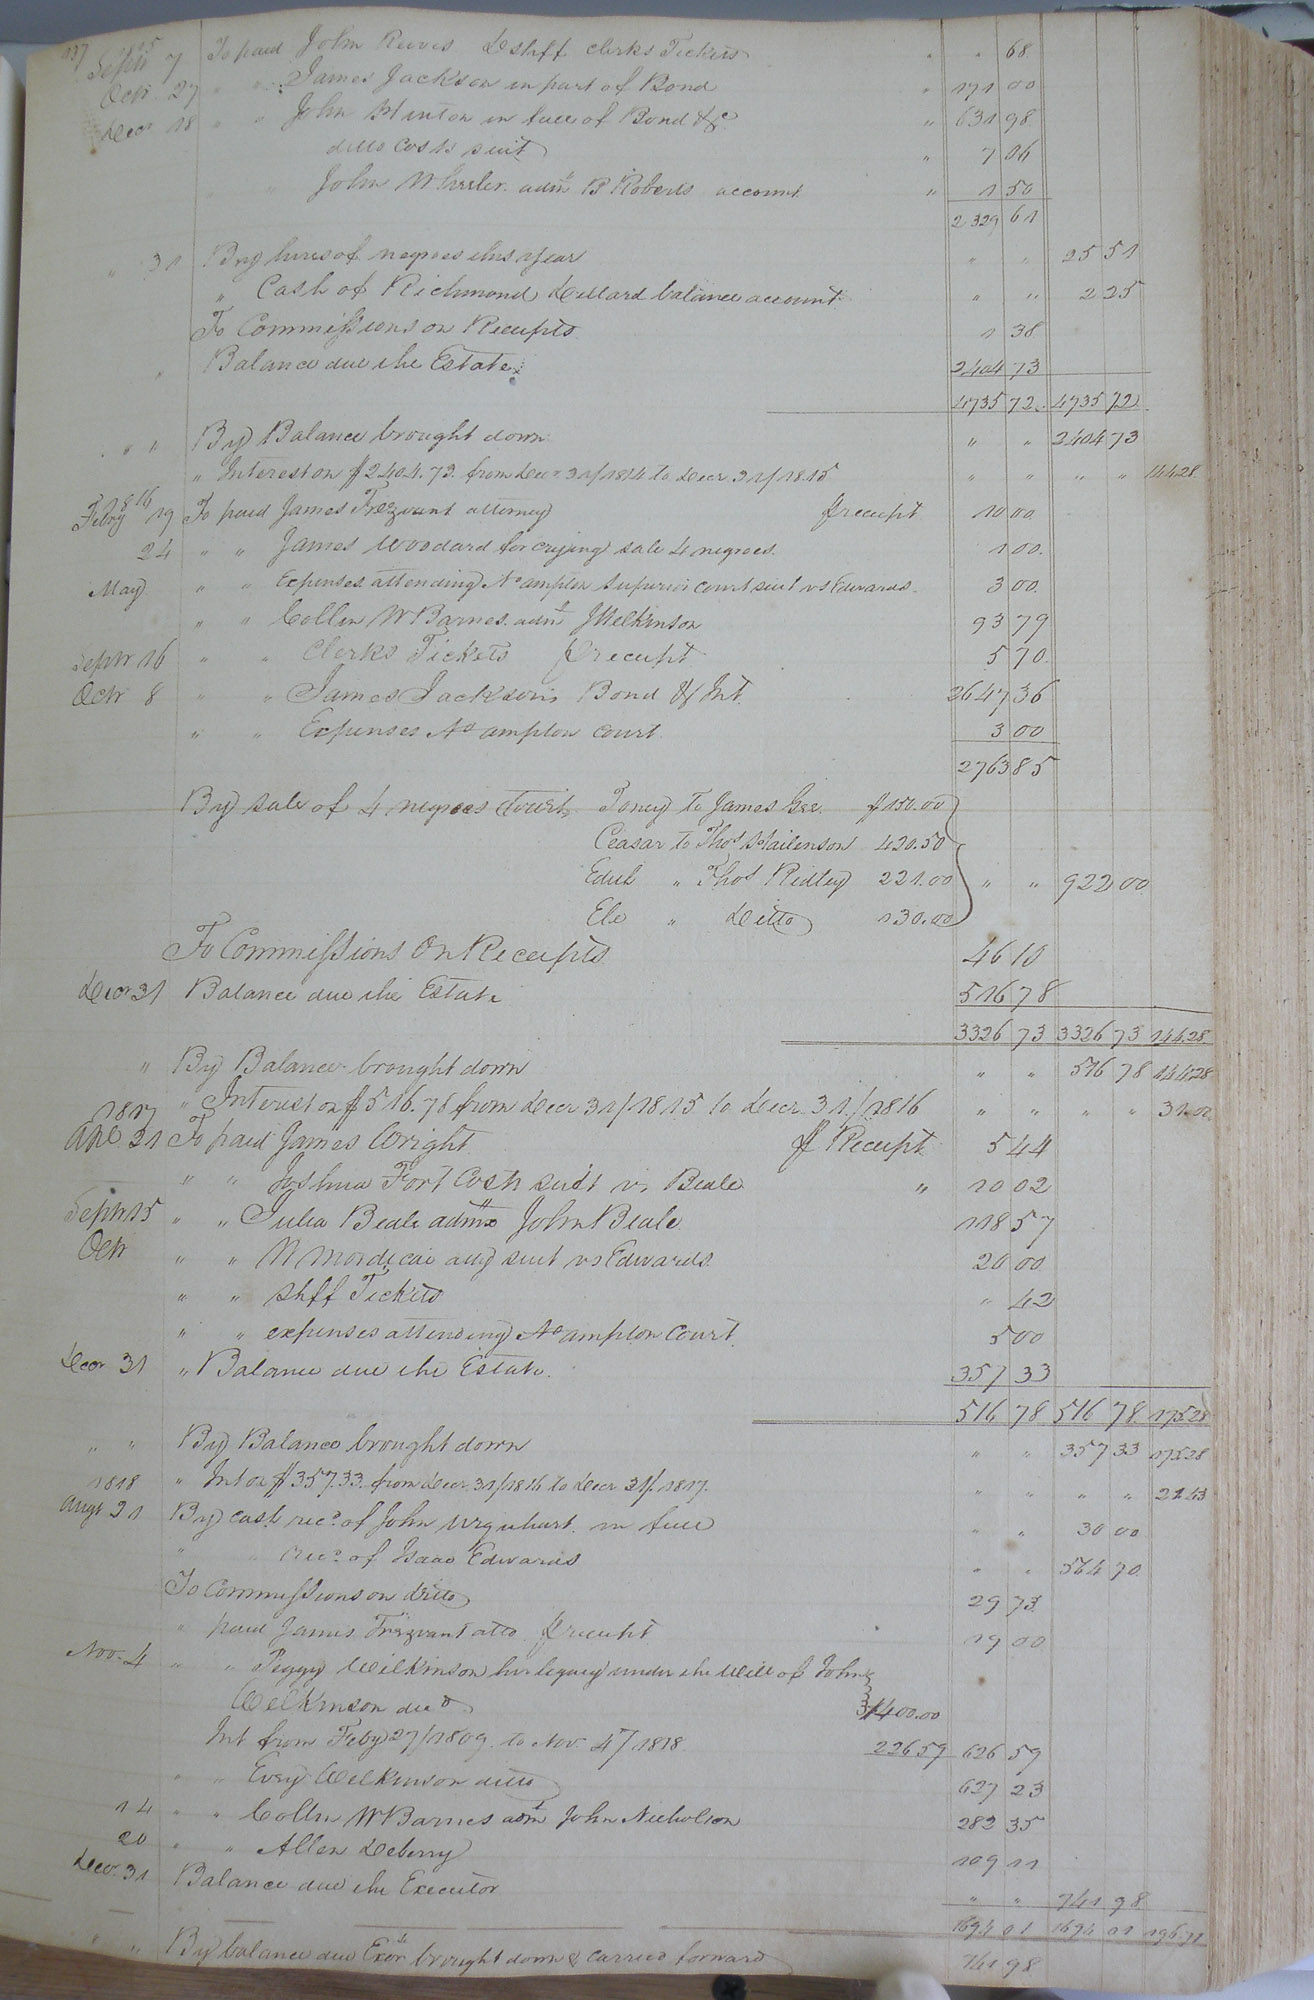 137
1815
Septr 7 To paid John Reeves D shff clerks Tickets " " 68
Octr 27 " " James Jackson in part of Bond " 171 00
Decr 18 " " John Hinton in full of Bond &c " 631 98
ditto Costs suit " 7 06
" John Wheeler admr B Roberts account " 1 50
2329 61
" 31 By hires of negroes this year " " 25 51
" Cash of Richmond Dillard balance account " " 2 25
To Commissions on Receipts 1 38
" Balance due the Estate 2404 73
4735 72 4735 72
" " By Balance brought down " " 2404 73
" Interest on $2404.73 from Decr 31/1814 to Decr 31/1815 " " " " 144.28
1816
Feby 19 To paid James Trezvant attorney p receipt 10 00
24 " " James Woodard for crying sale 4 negroes 1 00
May " " Expenses attending No ampton Superior court suit vs Edwards 3 00
" " Collin W Barnes admr J Wilkinson 93 79
Septr 16 " " Clerks Tickets p receipt 5 70
Octr 8 " " James Jacksons Bond & Int. 2647 36
" " Expenses No ampton court 3 00
2763 85
By sale of 4 negroes Toney to James Gee $150.00
Ceasar to Thos 420.50
Edith " Thos Ridley 221.00 " " 922 00
" Ditto 130.00
To Commissions On Receipts 46 10
Decr 31 Balance due the Estate 516 78
3326 73 3326 73 144.28
" By Balance brought down " " 516 78 144.28
" Interest on $516.78 from Decr 31/1815 to Decr 31/1816 " " " " 31.00
1817
Apl 21 To paid James Wright p Receipt 5 44
" " Joshua Fort Costs suit vs Beale " 10 02
Septr 15 " " Julia Beale admx John Beale 118 57
Octr " " M Mordicai atty suit vs Edwards 20 00
" " Shff Tickets " 42
" " expenses attending No ampton Court 5 00
Decr 31 " Balance due the Estate 357 33
516 78 516 78 175.28
" " By Balance brought down " " 357 33 175.28
" Int on $357.33 from Decr 31/1816 to Decr 31/1817 " " " " 21.43
1818
Augt 21 By cash recd of John Urquhart in full " " 30 00
" " recd of Isaac Edwards " " 564 70
To Commissions on ditto 29 73
" paid James Trezvant atto p receipt 19 00
Nov. 4 " " Peggy Wilkinson her legacy under the Will of John
Wilkinson decd $400.00
Int from Feby 27/1809 to Nov. 4/1818 226 59 626 59
" " Evey Wilkinson ditto 627 23
14 " " Collin W Barnes admr John Nicholson 282 35
20 " " Allen Deberry 109 11
Decr 31 Balance due the Executor " " 741 98
1694 01 1694 01 196.71
" " By balance due Exor brought down & carried forward 741 98